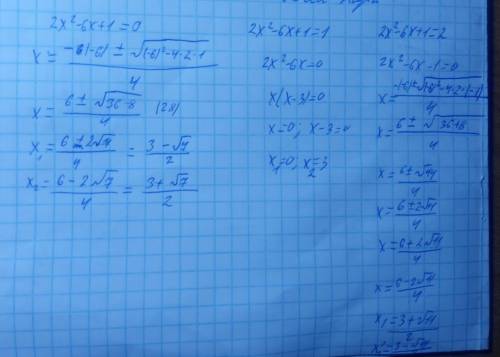 2x²-6x+1=0
x = -(-6) ± √(-6)²-4·2·1 / 4
x = 6 ± √36-8 / 4 (28)
x₁ = 6 ± 2√7 / 4 = 3-√7 / 2
x₂ = 6-2√7 / 4 = 3+√7 / 2
2x²-6x+1=1
2x²-6x=0
x(x-3)=0
x=0; x-3=0
x₁=0; x₂=3
2x²-6x+1=2
2x²-6x-1=0
x = -(-6) ± √(-6)²-4·2·(-1) / 4
x = 6 ± √36+8 / 4
x = 6 ± √44 / 4
x = 6 ± 2√11 / 4
x = 6+2√11 / 4
x = 6-2√11 / 4
x₁ = 3+√11 / 2
x₂ = 3-√11